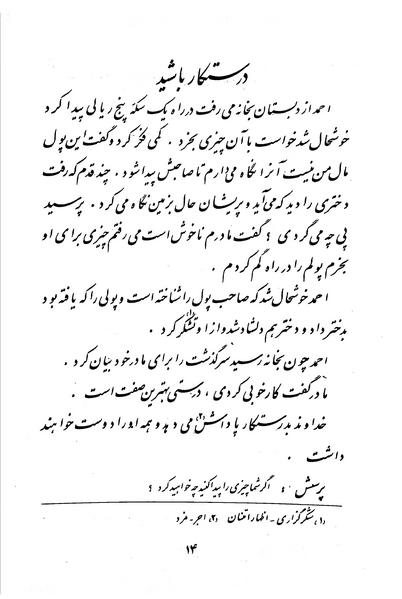 درستکار باشید
احمد از دبستان بخانه می‌رفت در راه یک سکهٔ پنج ریالی پیدا کرد
خوشحال شد خواست با آن چیزی بخرد . کمی فکر کرد و گفت این پول
مال من نیست آنرا نگاه میدارم تا صاحبش پیدا شود . چند قدم که رفت
دختری را دید که می‌آید و پریشان حال بزمین نگاه می‌کرد . پرسید
پی چه می‌گردی ؟ گفت مادرم ناخوش است می‌رفتم چیزی برای او
بخرم پولم را در راه گم کردم .
احمد خوشحال شد که صاحب پول را شناخته است و پولی را که یافته بود
بدختر داد و دختر هم دلشاد شد و از او تشکر(۱) کرد .
احمد چون بخانه رسید سرگذشت را برای مادر خود بیان کرد .
مادر گفت کار خوبی کردی ، درستی بهترین صفت است .
خداوند بدرستکار پاداش(۲) می دهد و همه اورا دوست خواهند
داشت .
پرسش : اگر شما چیزی را پیدا کنید چه خواهید کرد ؟
(۱) شکرگزاری - اظهار امتنان (۲) اجر - مزد
۱۴